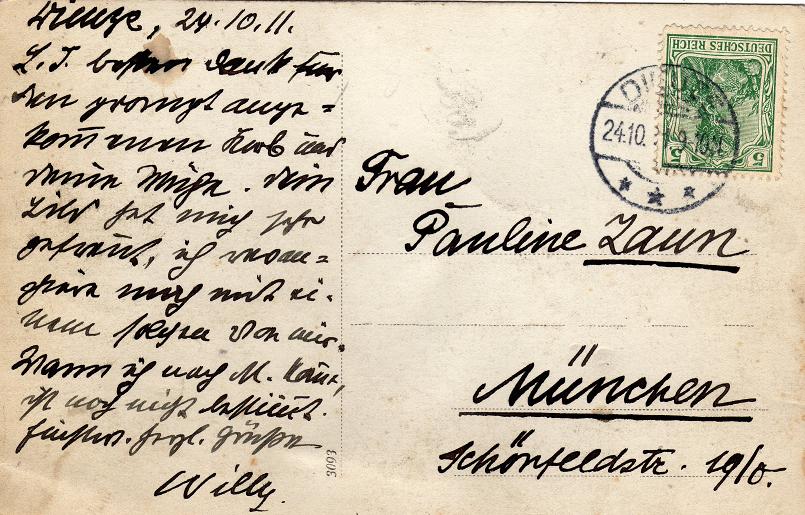 Dieuze, 24.10.11.
L. T. besten Dank für
den prompt ange=
kommenen Korb und
deine Mühe. Dein
Bild hat mich sehr
gefreut, ich revan=
chiere mich mit ei-
nem solchen von mir.
Wann ich nach M. komme,
ist noch nicht bestimmt.
herzl. Grüße
Willy.
3093
DEUTSCHES REICH
5 5
DIEUZE
24.10. 9-10V
Frau
Pauline Zaun
München
Schönfeldstr. 19/0.